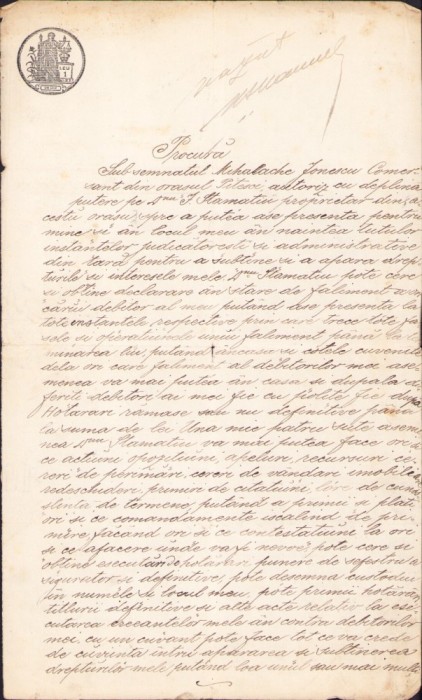 văzut
Procură
Subsemnatul Mihalache Ionescu Comer-
sant din orasul Pitesci autoriz cu deplina
putere pe Dnu I. Stamatiu proprietar din a-
cestu orasu, spre a putia ase presenta pentru
mine si in locul meu an naintea tutulor
instantelor judicatoresti si administrative
din tară pentru a sustine si a apara drep-
turile si interesele mele Dnu Stamatiu pote cere
si obtine declararea in stare de faliment a ori
cărui debitor al meu putand ase presenta la
tote instantele respective prin care trece tote fa-
sele si operatiunile unui faliment pâna la ter-
minarea lui, putand incasa si cotele cuvenite
dela ori care faliment al debitorilor mei ase-
menea va mai putea an casa si dupala de
feriti debitori ai mei fie cu polite fie dupa
Hotarari ramase sau nu definitive pâna
la suma de lei Una mie patru sute asem-
nea Dnu Stamatiu va mai putea face ori
ce actiuni opozitiuni, apeluri, recursuri ce-
reri de perimări, cerere de vândări imobile
redeschideri, primire de citatiuni, luare de cunos-
tenta de termene, putand a primi si plati
ori si ce comandamente iscalind de pri-
mire făcând ori si ce contestatiuni la ori
si ce afacere unde va fi nevoe, pote cere si
obtine esecutări de hotarari, punere de sefestru a
sigurator si definitive, pote desemna custodu
in numele si locul meu, pote primi hotărâri
titluri definitive si alte acte relativ la ese-
cutarea creantelor mele an contra debitorilor
mei, cu un cuvant pote face tot ce va crede
de cuvinta intru apararea si sustinerea
drepturilor mele, putând lua unul sau mai multi